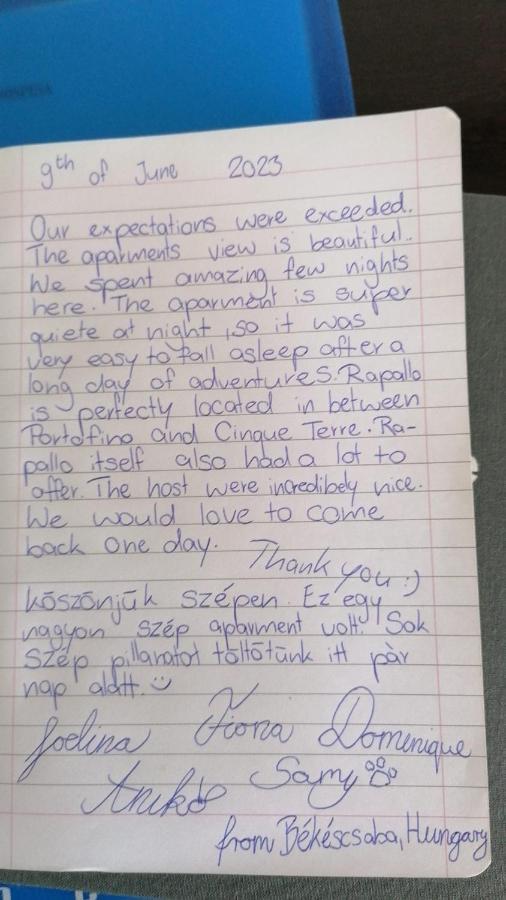 9th of June 2023
Our expectations were exceeded.
The aparments view is beautiful.
We spent amazing few nights
here. The aparment is super
quiete at night, so it was
very easy to fall asleep after a
long day of adventures. Rapallo
is perfecty located in between
Portofino and Cinque Terre. Ra-
pallo itself also had a lot to
offer. The host were incredibely nice.
We would love to come
back one day. Thank you :)
köszönjük szépen. Ez egy
nagyon szép aparment volt! Sok
szép pillanatot töltötünk itt pàr
nap alatt.
Joelina Fiona Domenique
Anikó Samy
from Békéscsaba, Hungary